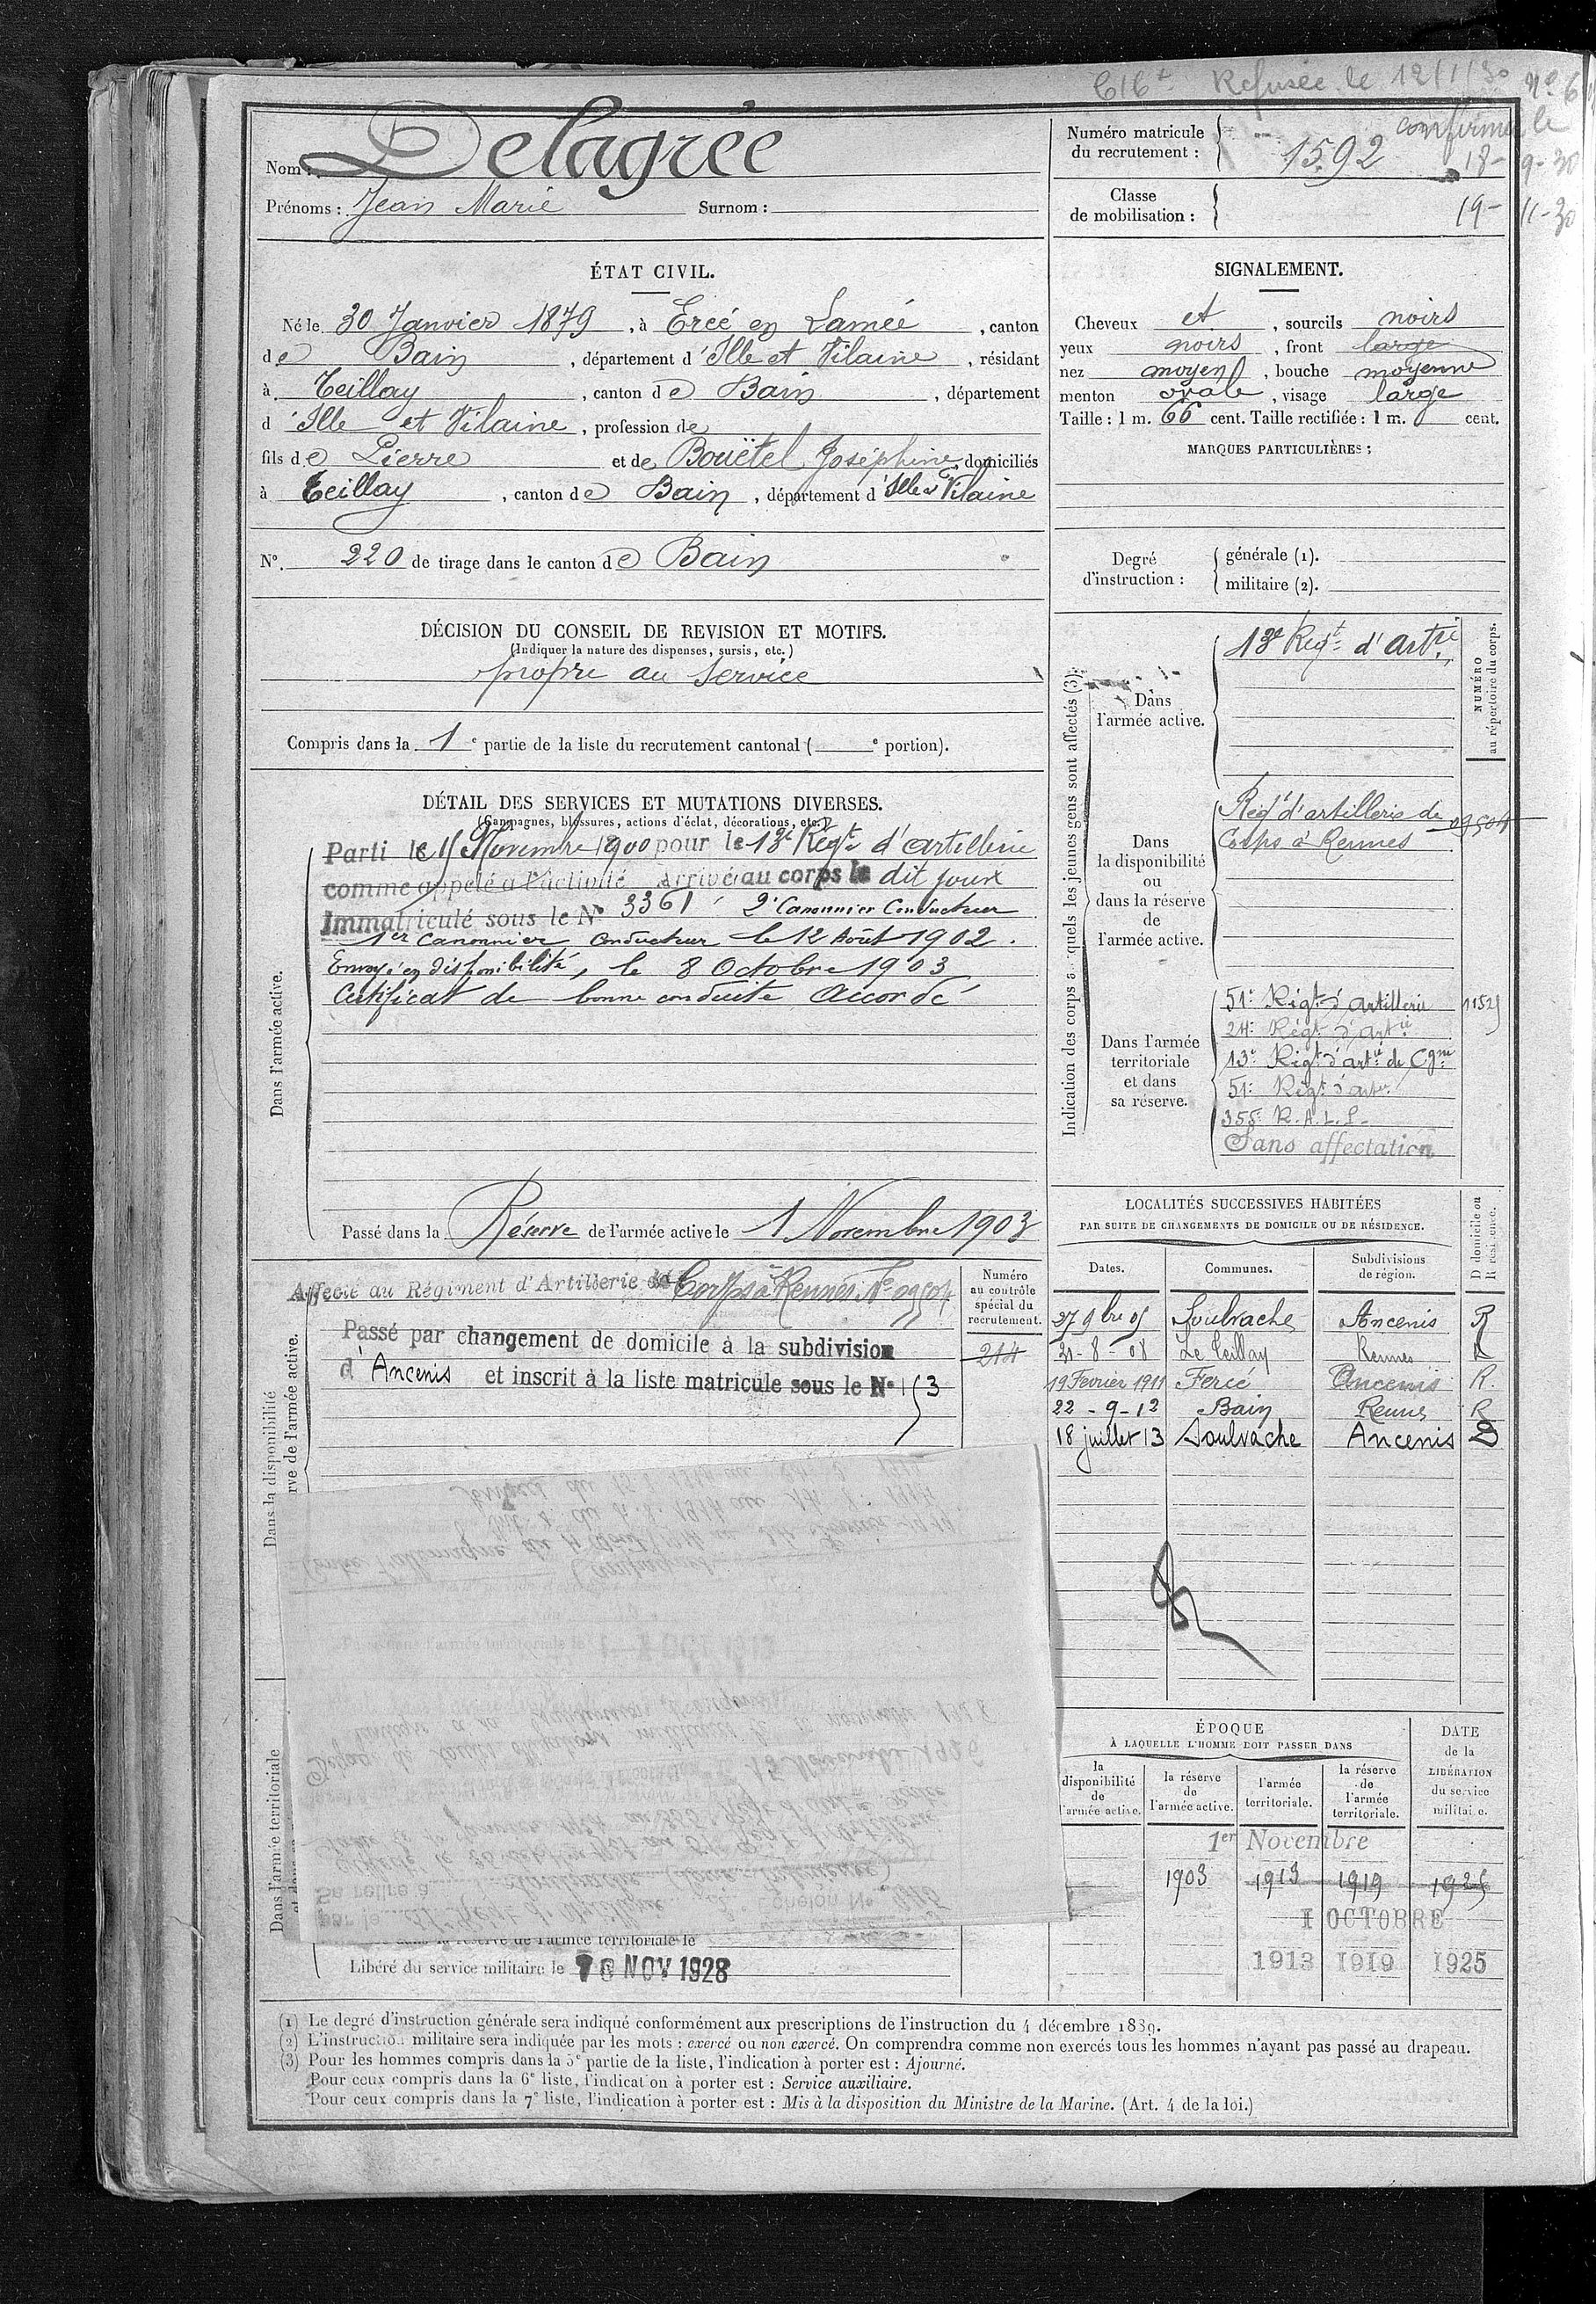 Cte Refusée le 12/1/30
confirmée le
18-9-30
19-11-30
Nom : Delagrée
Prénoms : Jean Marie Surnom :
Numéro matricule du recrutement : 1592
Classe de mobilisation :
ÉTAT CIVIL.
Né le 30 Janvier 1879, à Ercé en Lamée, canton
de Bain, département d'Ille et Vilaine, résidant
à Teillay, canton de Bain, département
d'Ille et Vilaine, profession de
fils de Pierre et de Bouëtel Joséphine, domiciliés
à Teillay, canton de Bain, département d'Ille et Vilaine
N° 220 de tirage dans le canton de Bain
SIGNALEMENT.
Cheveux et, sourcils noirs
yeux noirs, front large
nez moyen, bouche moyenne
menton ovale, visage large
Taille : 1 m. 66 cent. Taille rectifiée : 1 m. cent.
MARQUES PARTICULIÈRES :
Degré d'instruction : générale (1).
militaire (2).
DÉCISION DU CONSEIL DE REVISION ET MOTIFS.
(Indiquer la nature des dispenses, sursis, etc.)
propre au service
Compris dans la 1e partie de la liste du recrutement cantonal ( e portion).
DÉTAIL DES SERVICES ET MUTATIONS DIVERSES.
(Campagnes, blessures, actions d'éclat, décorations, etc.)
Dans l'armée active.
Parti le 15 Novembre 1900 pour le 13e Régt d'artillerie
comme appelé à l'activité Arrivé au corps le dit jour
Immatriculé sous le N° 3361 2e Canonnier Conducteur
1er Canonnier Conducteur le 12 Août 1902.
Envoyé en disponibilité, le 8 Octobre 1903
Certificat de bonne conduite Accordé
Passé dans la Réserve de l'armée active le 1 Novembre 1903
Indication des corps auxquels les jeunes gens sont affectés (3).
NUMÉRO au répertoire du corps.
Dans l'armée active.
13e Régt d'Artrie
Dans la disponibilité ou dans la réserve de l'armée active.
Régt d'artillerie de 09504
Corps à Rennes
Dans l'armée territoriale et dans sa réserve.
51e Régt d'artillerie 11525
24e Régt d'artie
13e Régt d'artie de Cgne
51e Régt d'artie
355e R.A.L.P.
Sans affectation
Dans la disponibilité
rve de l'armée active.
Affecté au Régiment d'Artillerie de Corps à Rennes N° 09504
Passé par changement de domicile à la subdivision
d'Ancenis et inscrit à la liste matricule sous le N° 153
Numéro au contrôle spécial du recrutement.
214
LOCALITÉS SUCCESSIVES HABITÉES
PAR SUITE DE CHANGEMENTS DE DOMICILE OU DE RÉSIDENCE.
Dates. Communes. Subdivisions de région. D domicile ou R résidence.
27 9bre 05 Soulvache Ancenis R
21-8-08 Le Teillay Rennes R
19 Février 1911 Fercé Ancenis R.
22-9-12 Bain Rennes R
18 juillet 13 Soulvache Ancenis D
Dans l'armée territoriale
Libéré du service militaire le 10 NOV 1928
ÉPOQUE
À LAQUELLE L'HOMME DOIT PASSER DANS
la disponibilité de l'armée active. la réserve de l'armée active. l'armée territoriale. la réserve de l'armée territoriale.
DATE de la LIBÉRATION du service militaire.
1er Novembre
1903 1913 1919 1925
1 OCTOBRE
1913 1919 1925
(1) Le degré d'instruction générale sera indiqué conformément aux prescriptions de l'instruction du 4 décembre 1889.
(2) L'instruction militaire sera indiquée par les mots : exercé ou non exercé. On comprendra comme non exercés tous les hommes n'ayant pas passé au drapeau.
(3) Pour les hommes compris dans la 5e partie de la liste, l'indication à porter est : Ajourné.
Pour ceux compris dans la 6e liste, l'indication à porter est : Service auxiliaire.
Pour ceux compris dans la 7e liste, l'indication à porter est : Mis à la disposition du Ministre de la Marine. (Art. 4 de la loi.)